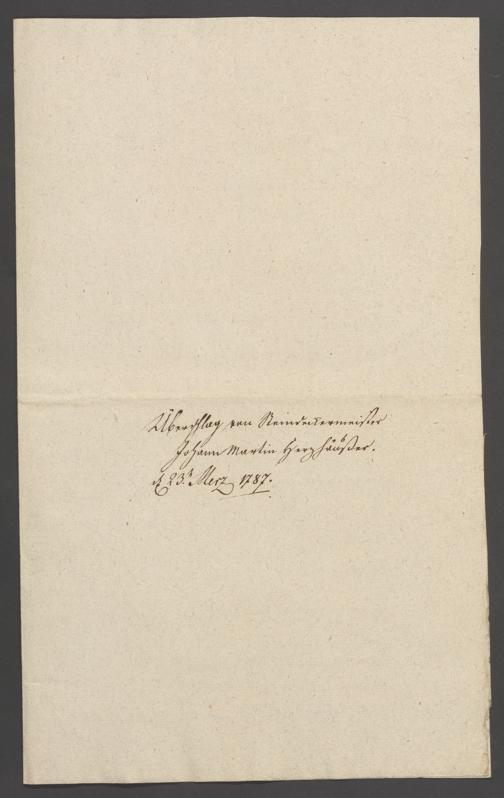 Überschlag von Steindeckermeister
Johann Martin Herzhäußer.
d 23.t Merz 1787.